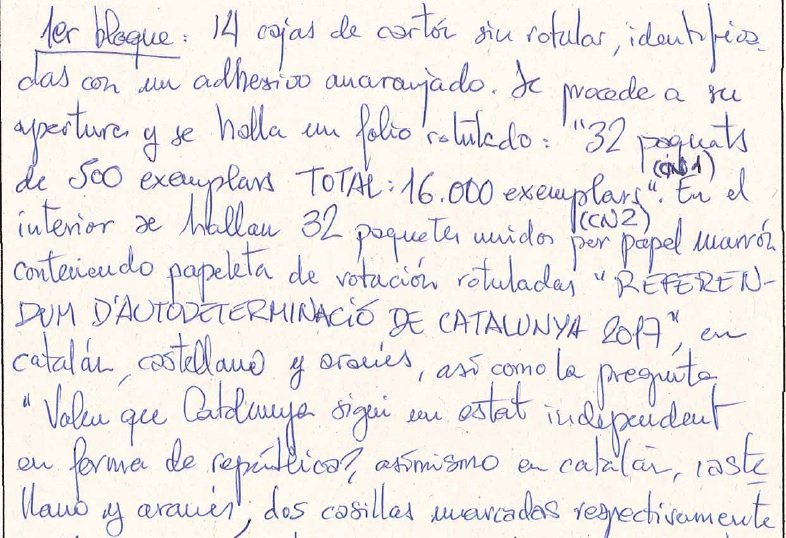 1er bloque: 14 cajas de cartón sin rotular, identifica-
das con un adhesivo anaranjado. Se procede a su
apertura y se halla un folio rotulado: "32 paquets
(CN1)
de 500 exemplars TOTAL: 16.000 exemplars". En el
(CN2)
interior se hallan 32 paquetes unidos por papel marrón
conteniendo papeleta de votación rotuladas "REFEREN-
DUM D'AUTODETERMINACIÓ DE CATALUNYA 2017", en
catalán, castellano y aranés, así como la pregunta
"Voleu que Catalunya sigui un estat independent
en forma de república?, asimismo en catalán, caste
llano y aranés, dos casillas marcadas respectivamente